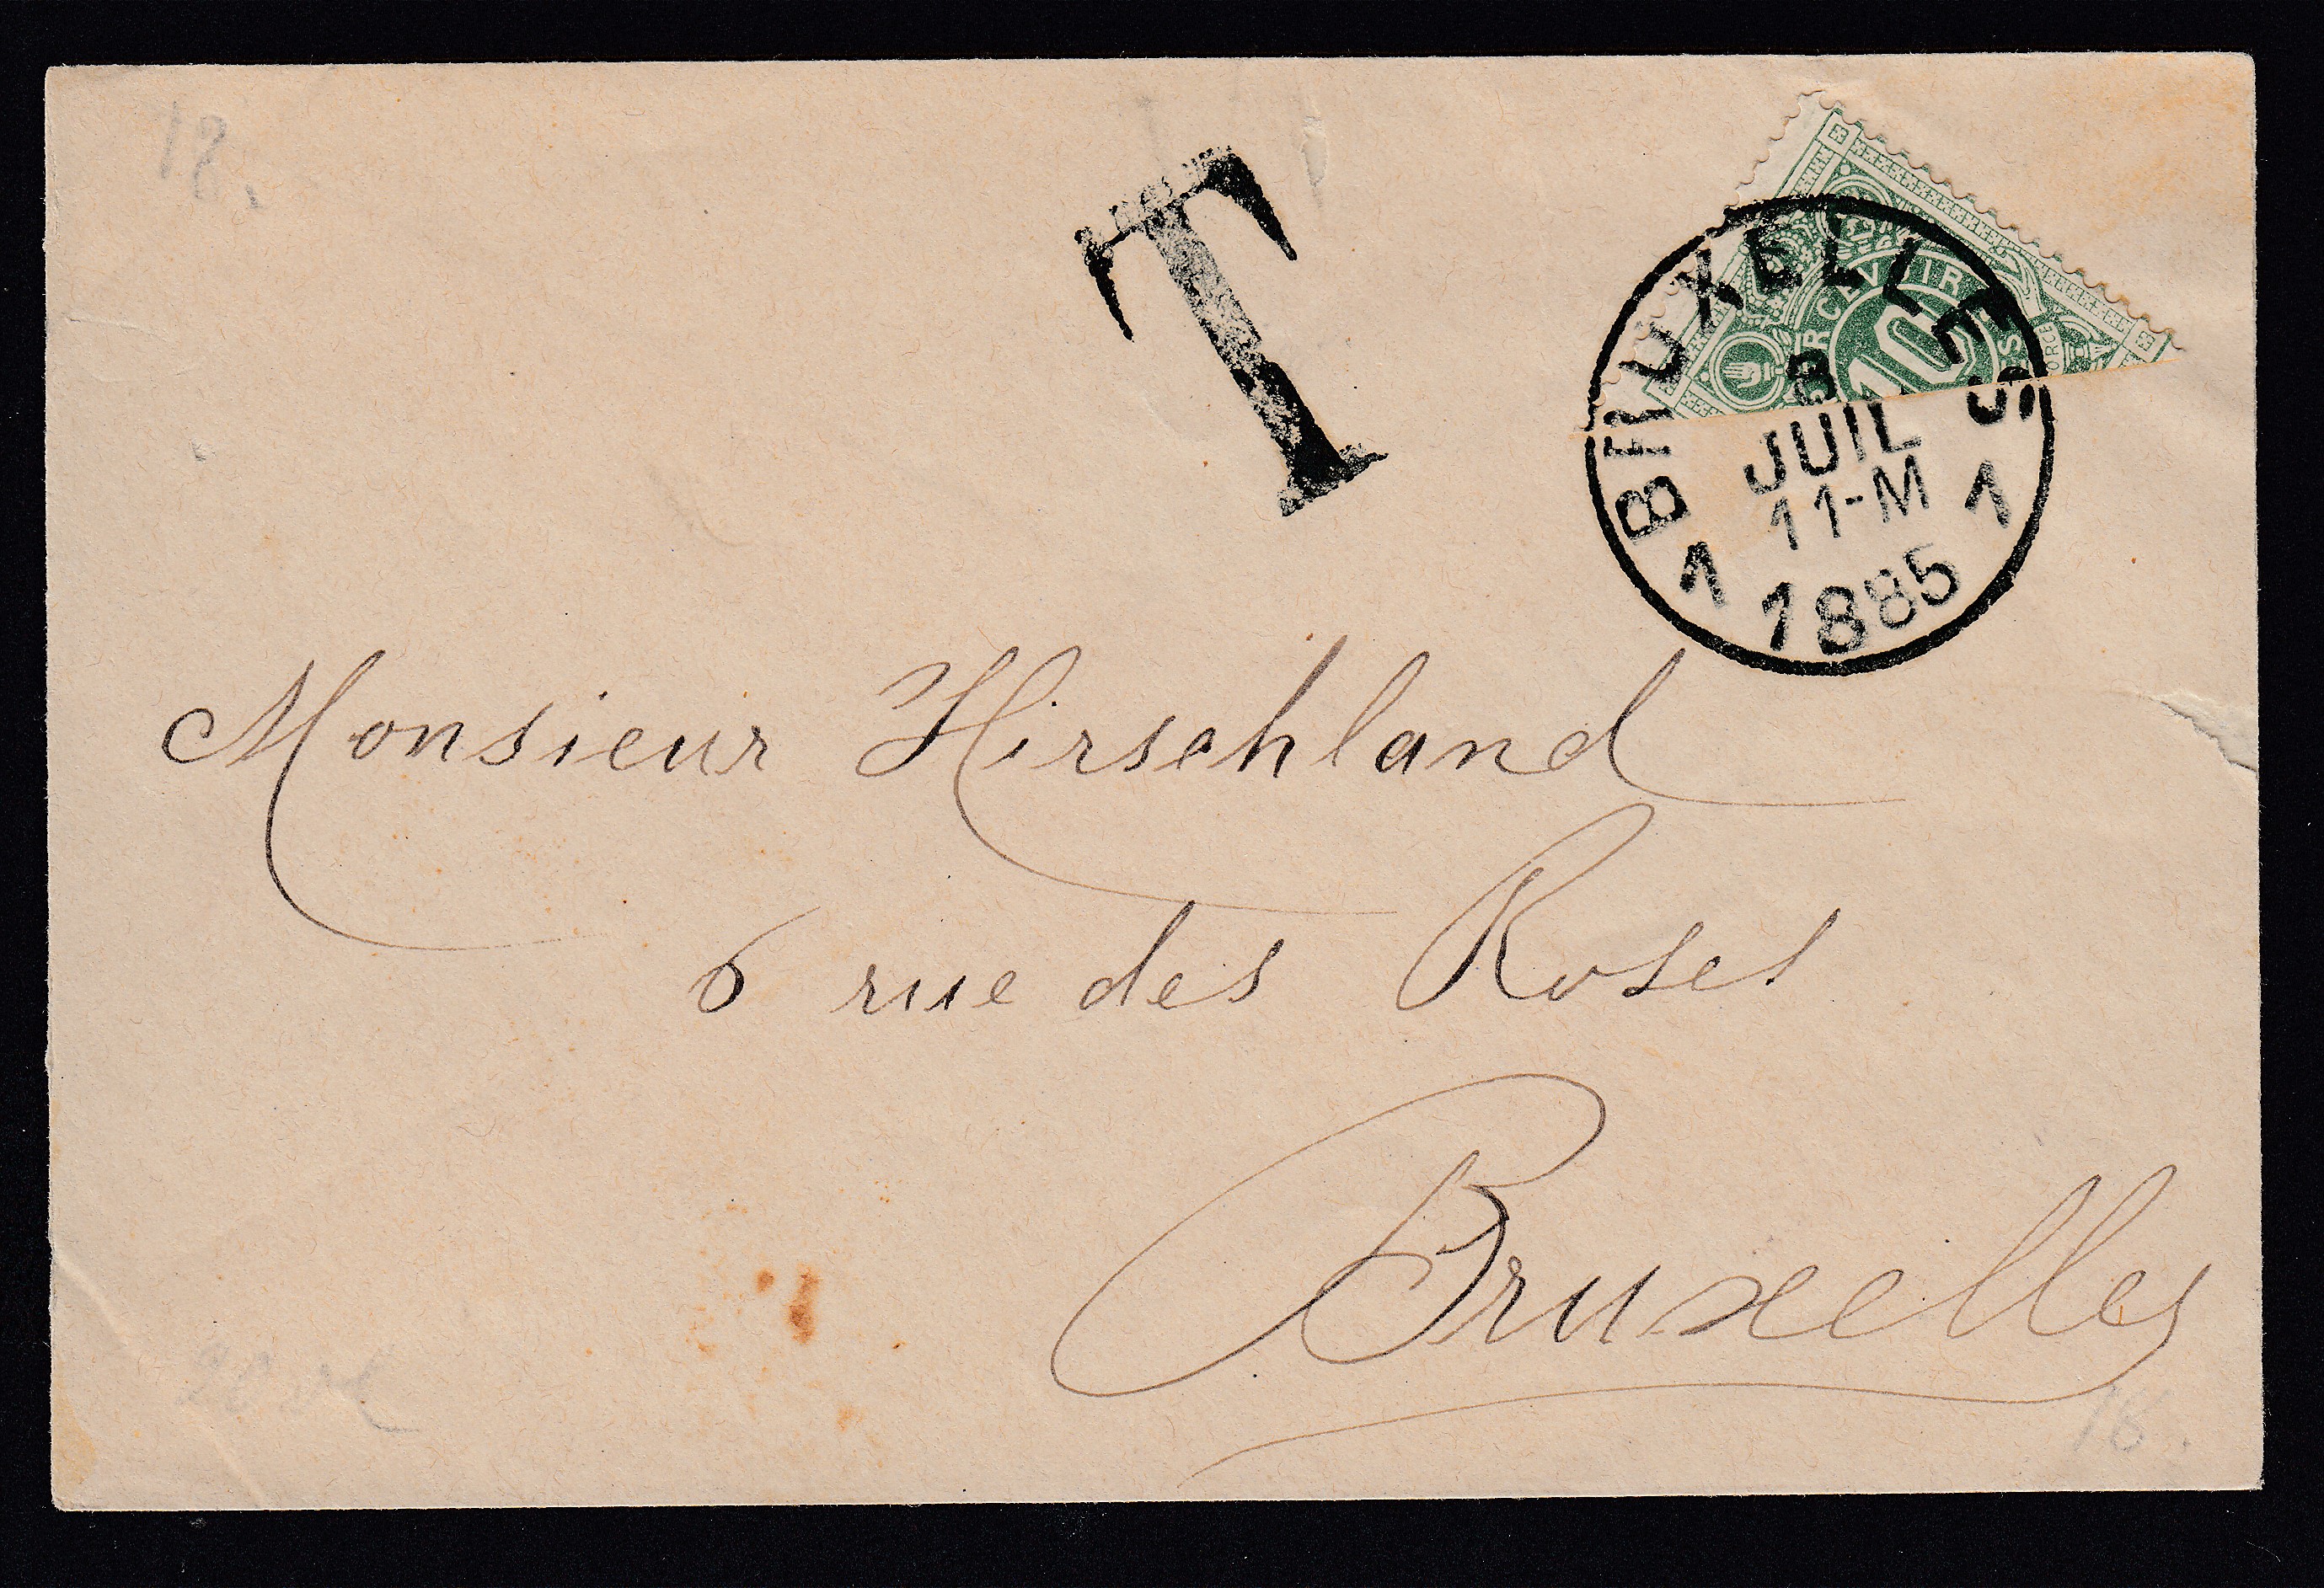 18.
T
BRUXELLES
RCEVOIR
10
8
JUIL
11-M
1 1
1885
Monsieur Hirschland
6 rue des Roses
Bruxelles
18.